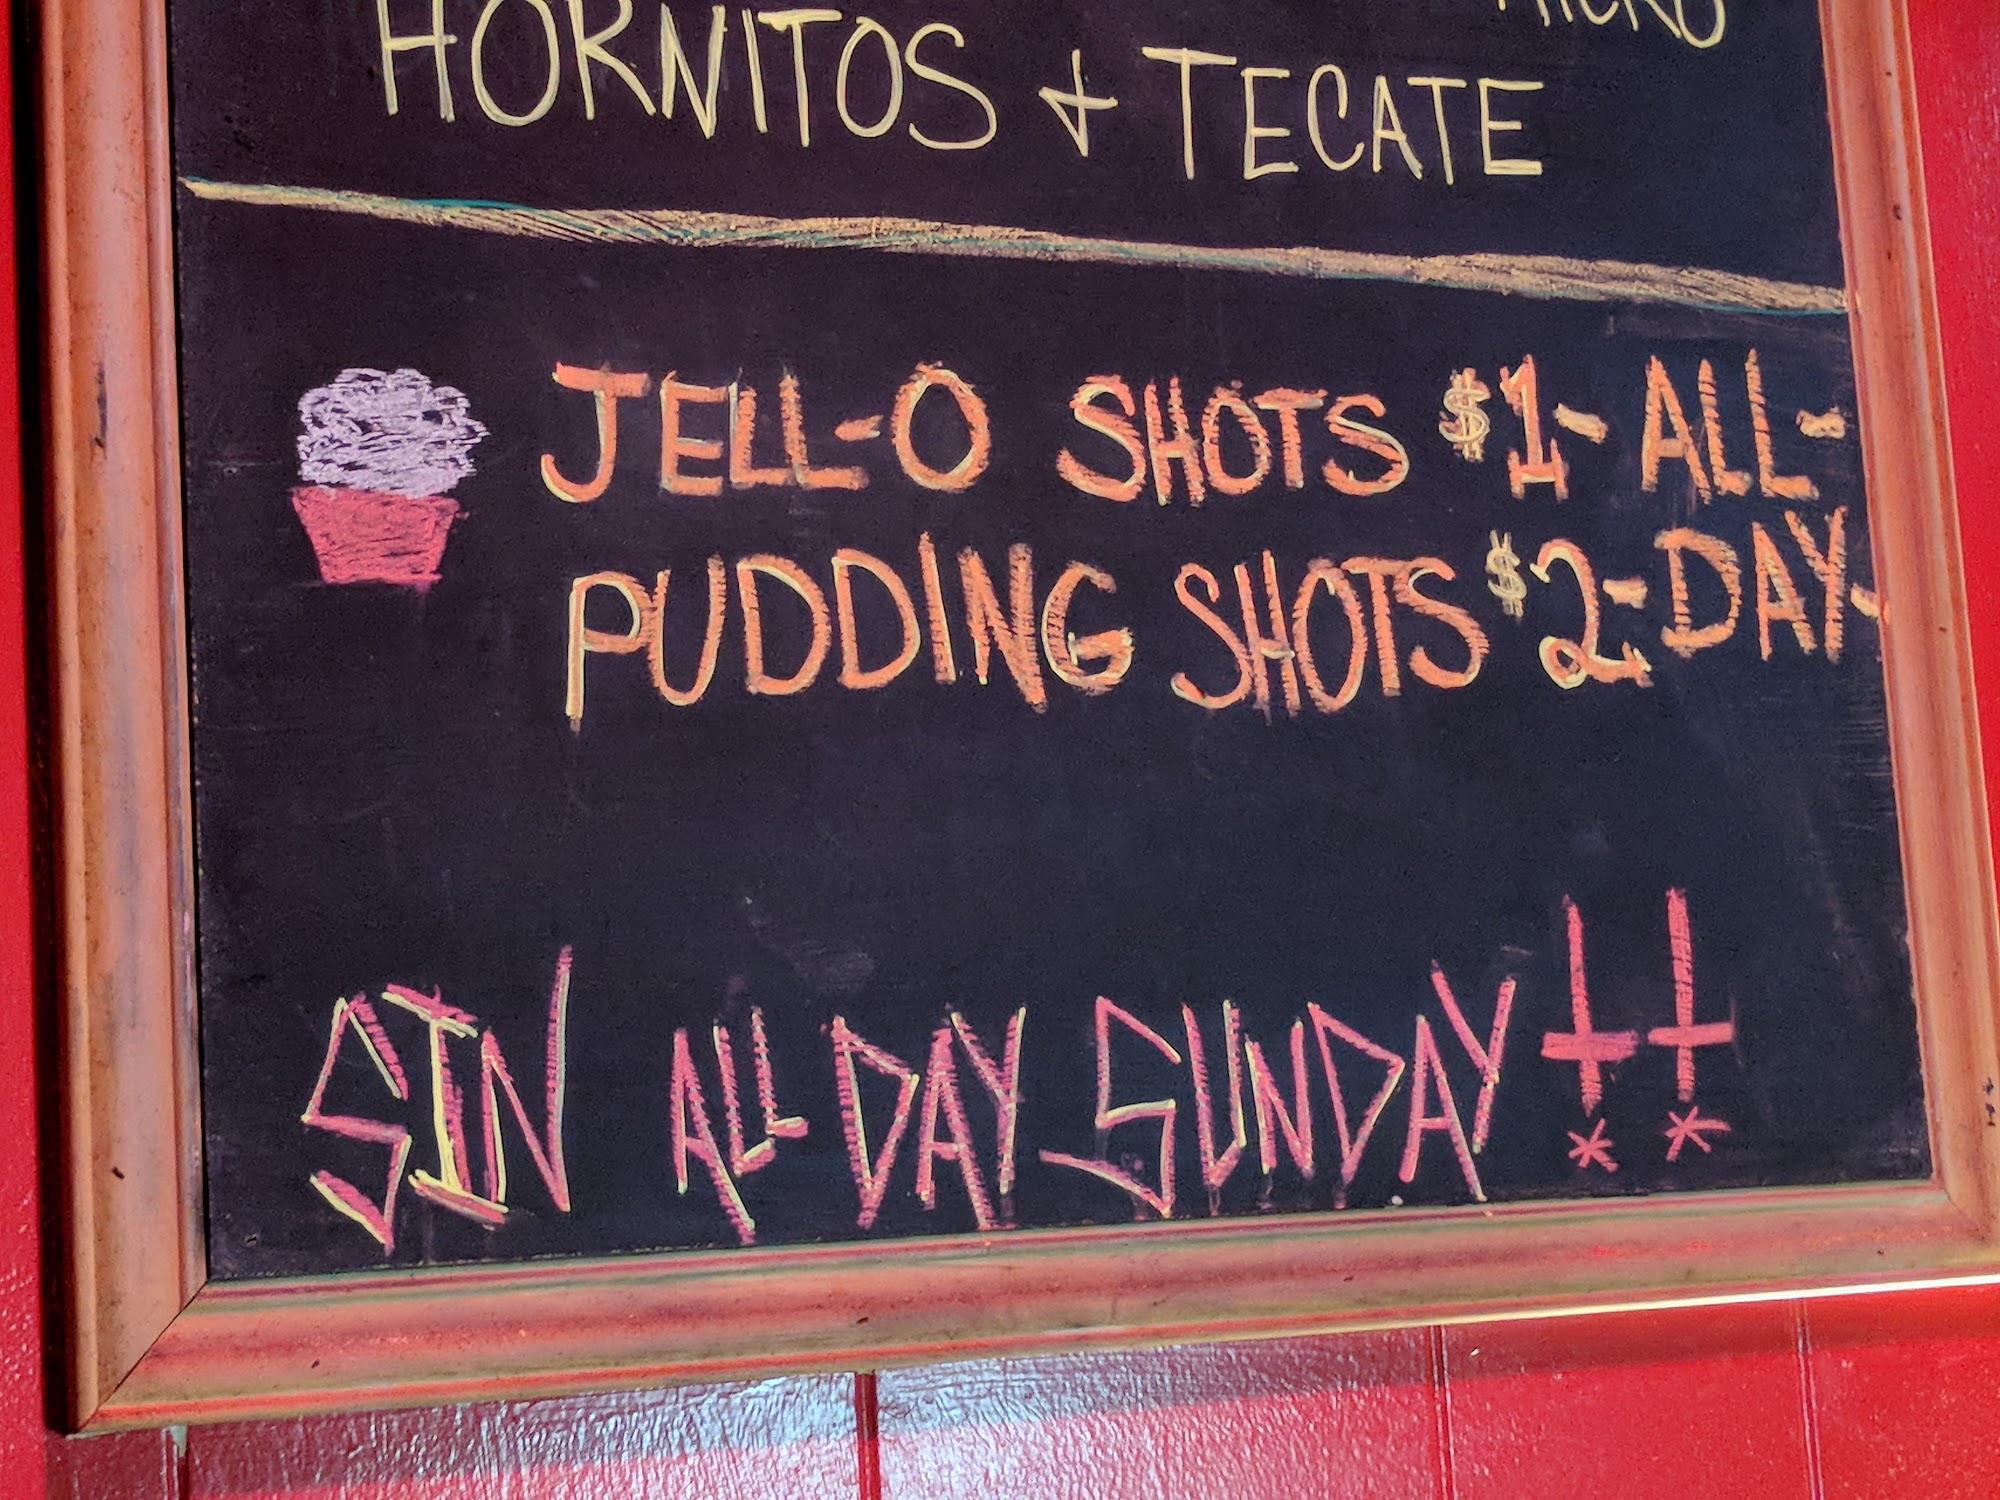 MICRO
HORNITOS + TECATE
JELL-O SHOTS $1- ALL-
PUDDING SHOTS $2- DAY-
SIN ALL DAY SUNDAY